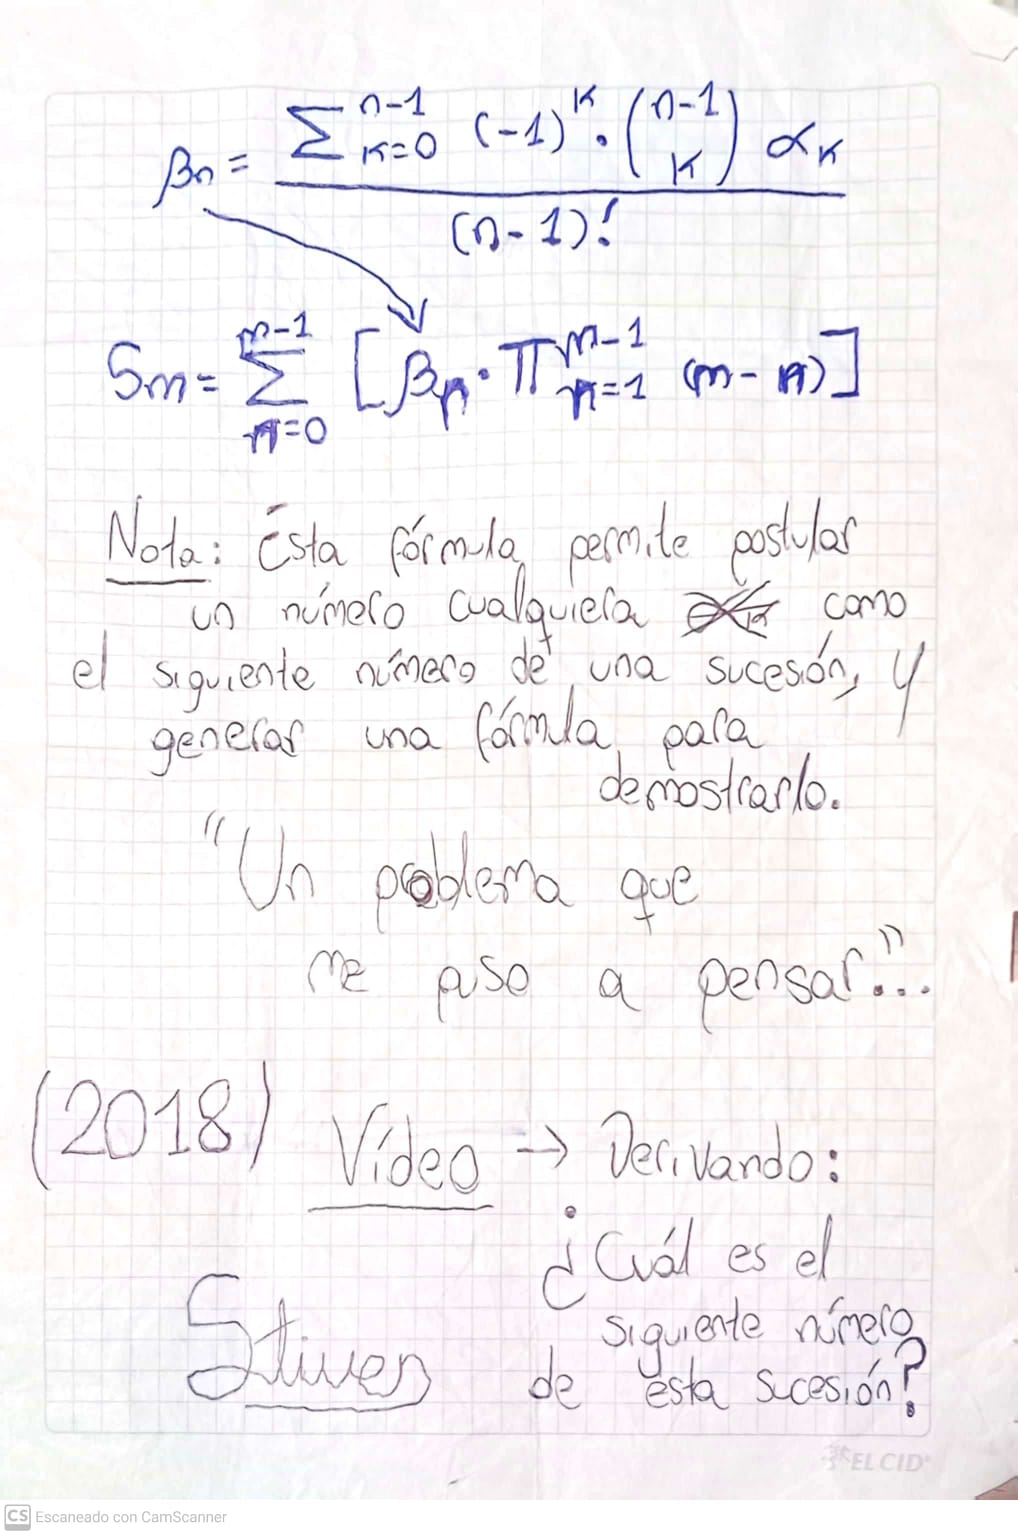 βn = Σ n-1 k=0 (-1)^k · (n-1 k) αk
(n-1)!
Sm = Σ m-1 n=0 [βn · π m-1 n=1 (m-n)]
Nota: Ésta fórmula permite postular
un número cualquiera como
el siguiente número de una sucesión, y
generar una fórmula para
demostrarlo.
"Un problema que
me puso a pensar"...
(2018)
Vídeo → Derivando:
¿Cuál es el
siguiente número
de esta sucesión?
Stiven
EL CID
CS Escaneado con CamScanner